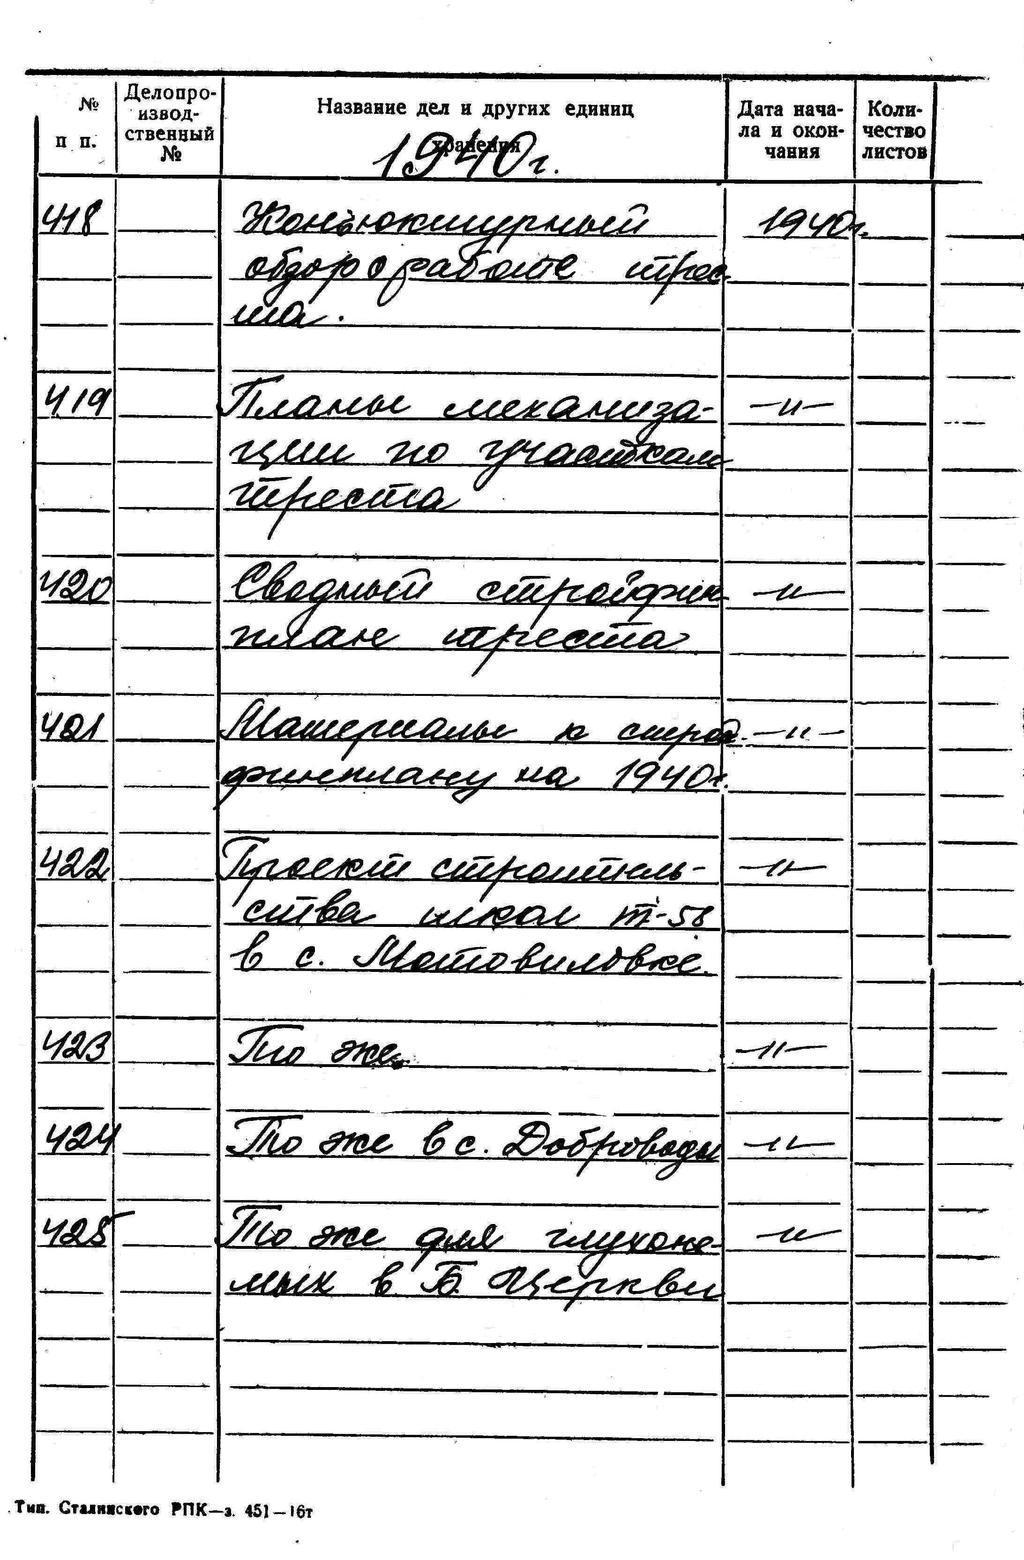 № п п.
Делопроизвод-
ственный
№
Название дел и других единиц
хранения
Дата нача-
ла и окон-
чания
Коли-
чество
листов
1940 г.
418 Конъюктурный 1940 г.
обзор о работе трес
та.
419 Планы механиза- —"—
ции по участкам
треста
420 Сводный стройфин- —"—
план треста
421 Материалы к строй —"—
финплану на 1940 г.
422 Проект строитель- —"—
ства школ т-58
в с. Мотовиловке.
423 То же —"—
424 То же в с. Доброводы —"—
425 То же для глухоне- —"—
мых в Б. Церкви
Тип. Сталинского РПК—з. 451—16т